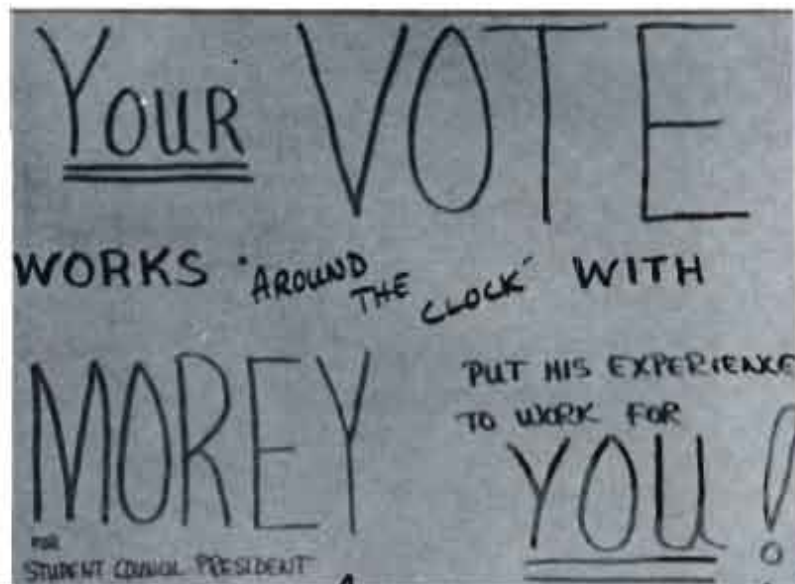 YOUR VOTE
WORKS "AROUND THE CLOCK" WITH
MOREY
FOR
STUDENT COUNCIL PRESIDENT
PUT HIS EXPERIENCE
TO WORK FOR
YOU!